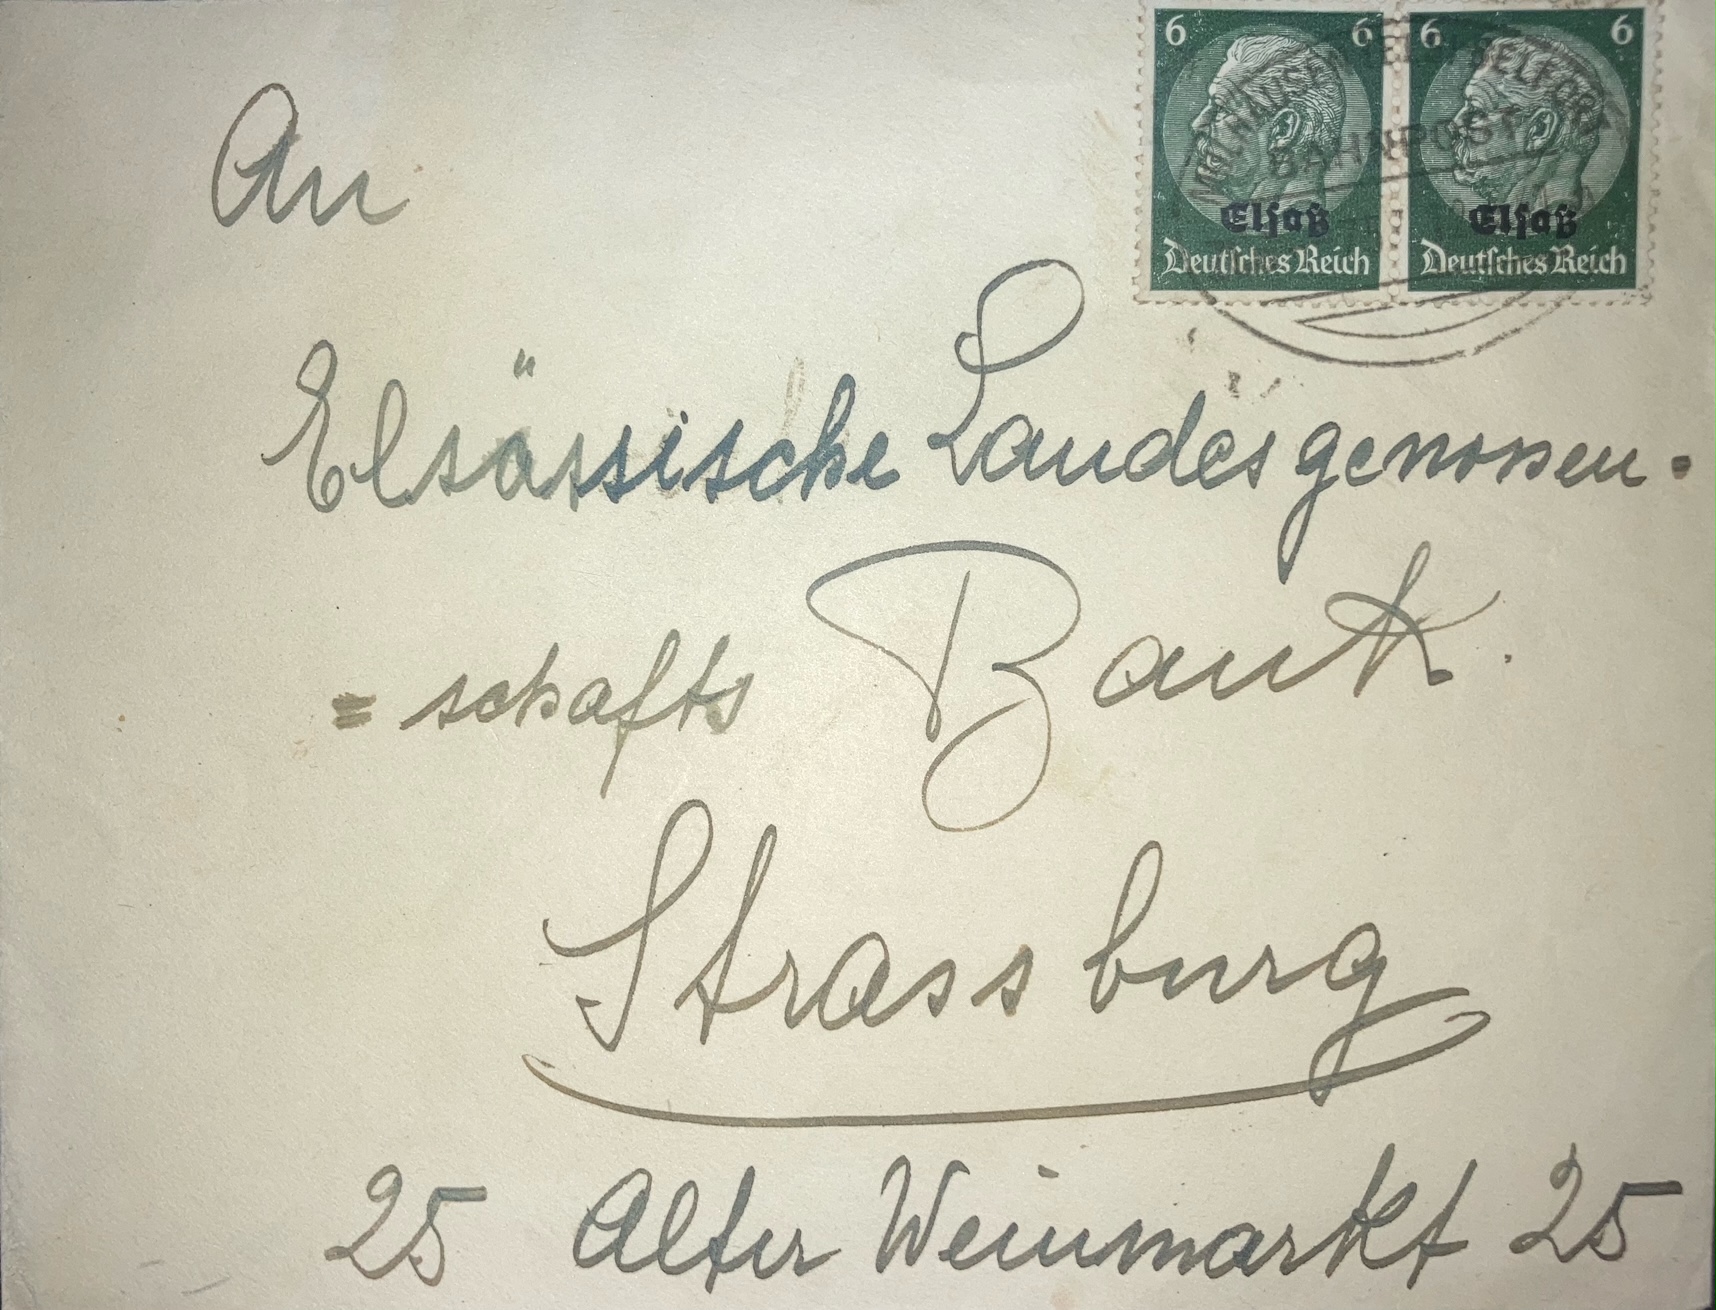 6 6 6 6
MÜLHAUSEN (ELS) BELFORT
BAHNPOST
Elsaß Elsaß
Deutsches Reich Deutsches Reich
An
Elsässische Landesgenossen=
=schafts Bank.
Strassburg
25 Alter Weinmarkt 25